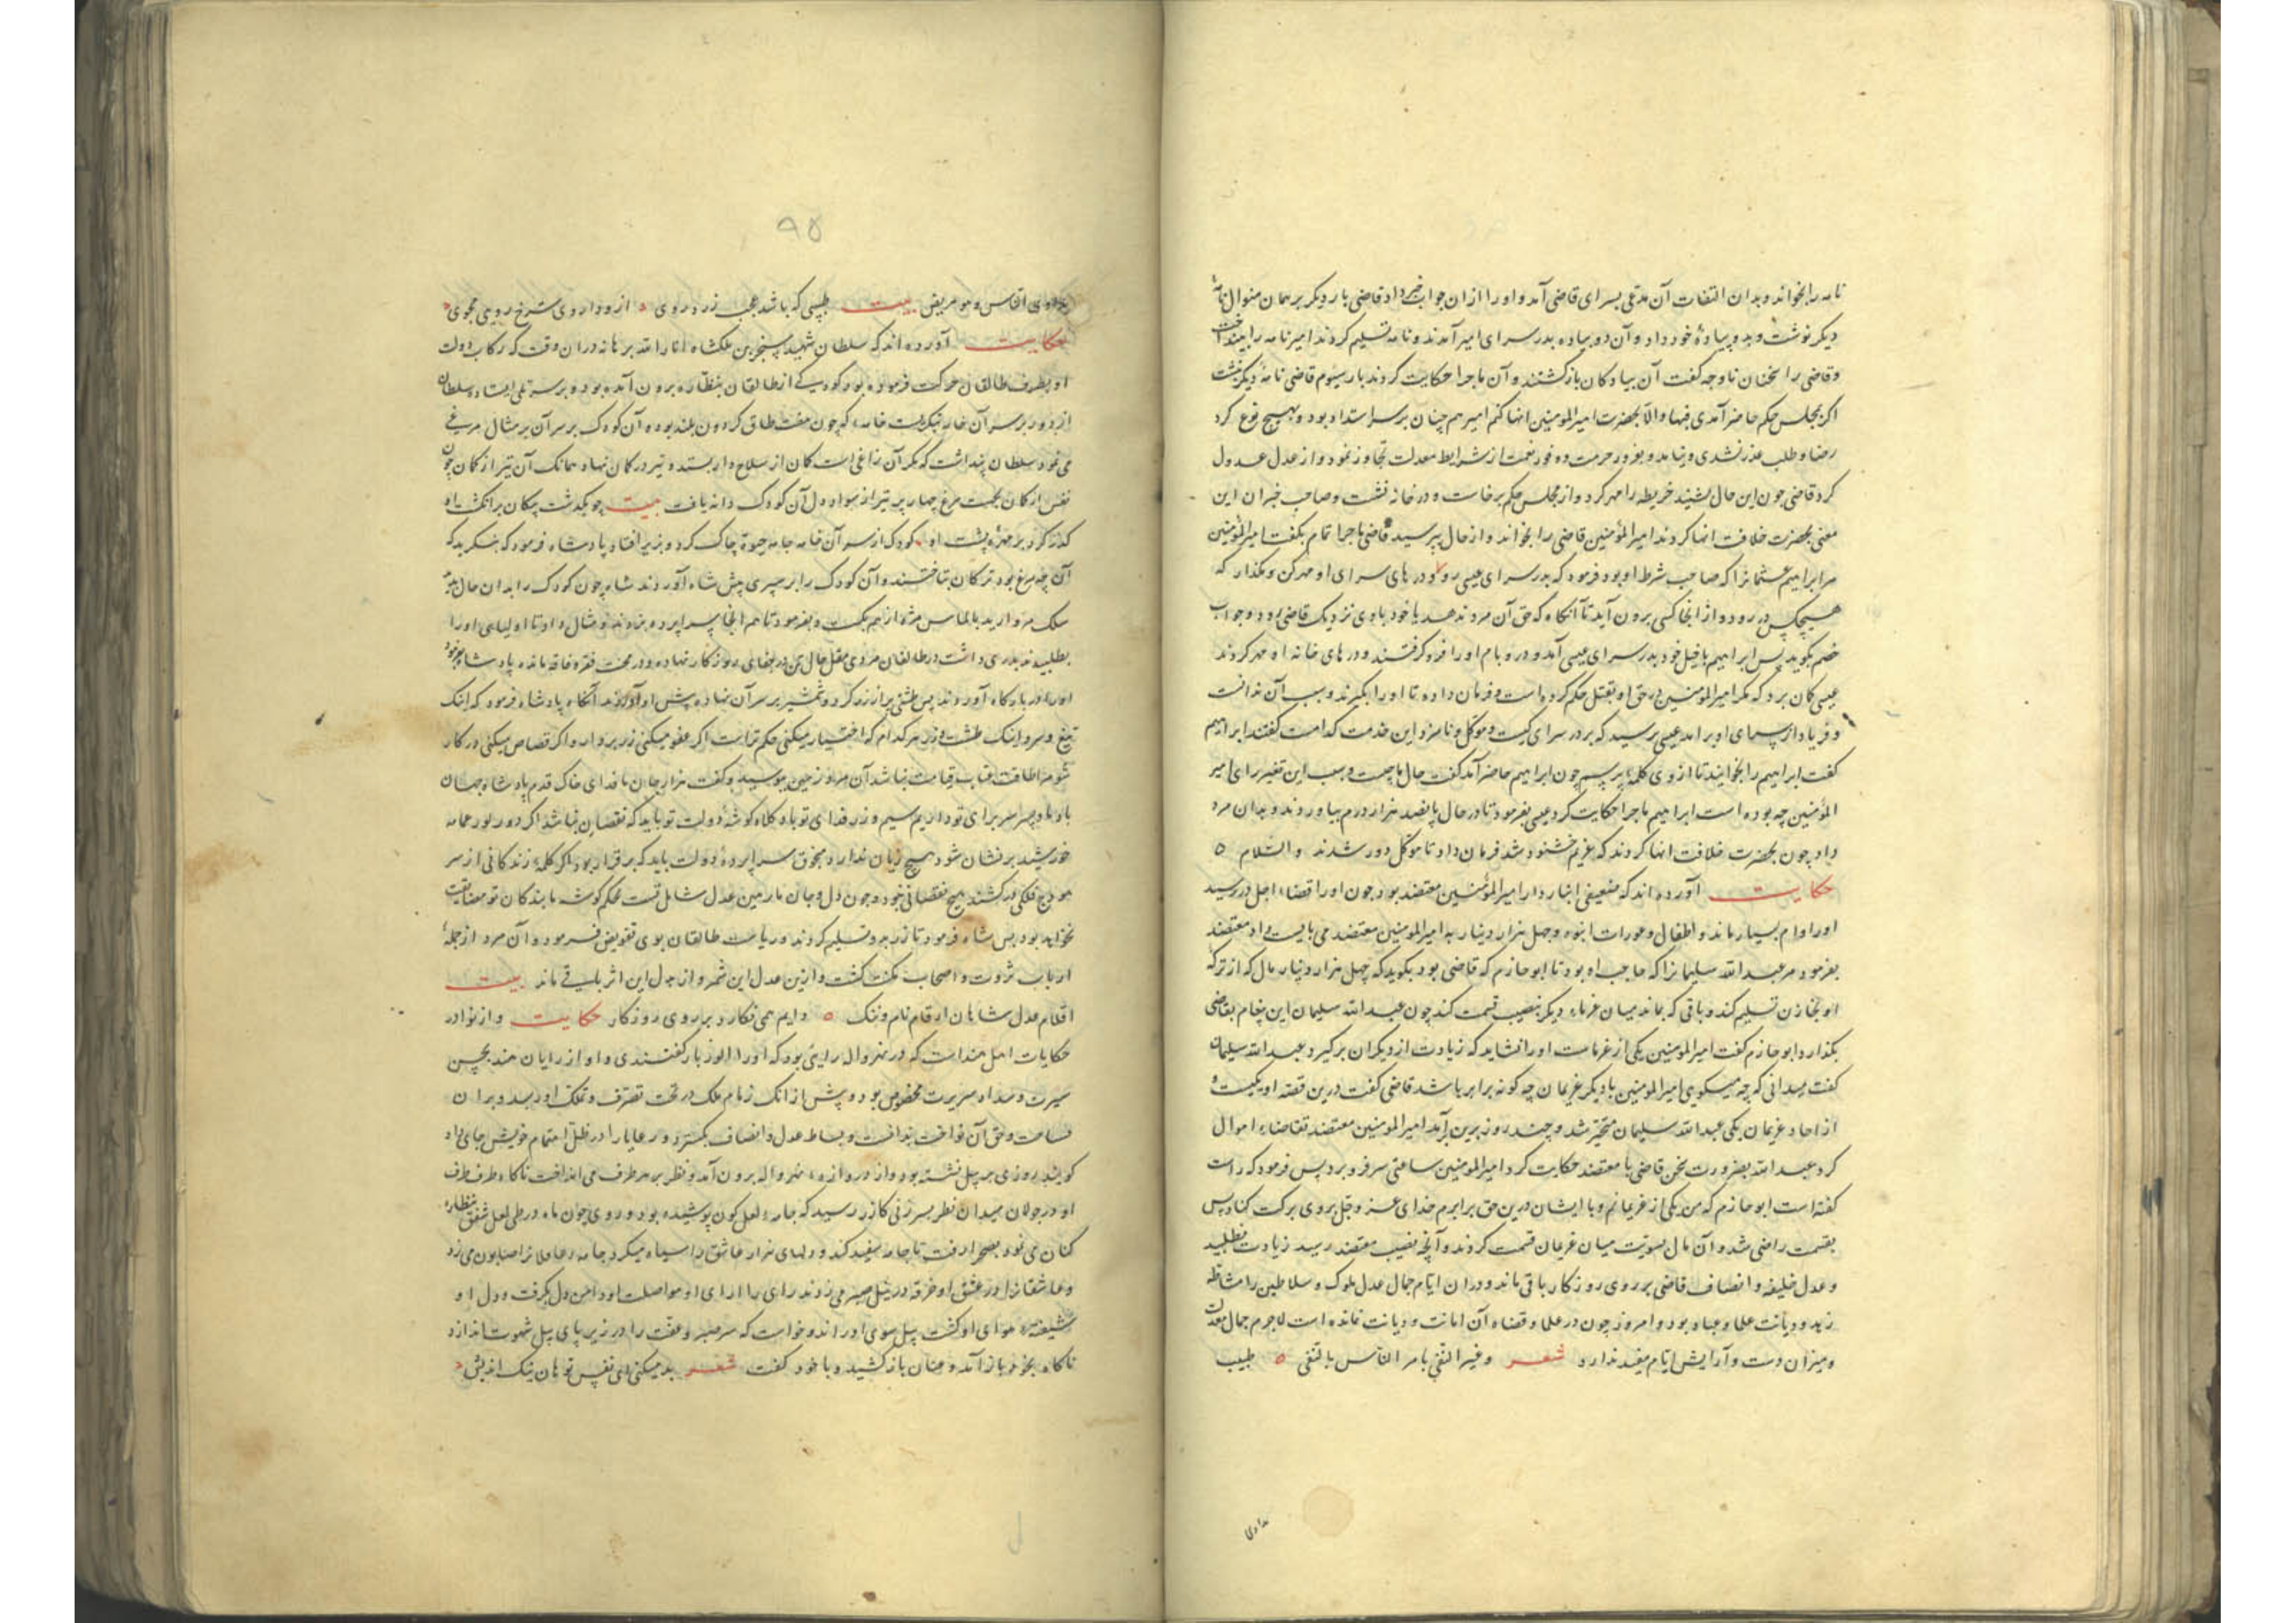 نامه را بخواند و بدان التفات آن مدعی بسرای قاضی آمد و او را از ان جواب خبر داد قاضی بار دیگر بر همان منوال نامهٔ
دیگر نوشت و بدو پیادهٔ خود داد و آن دو پیاده بدر سرای امیر آمدند و نامه تسلیم کردند امیر نامه را بینداخت
و قاضی را سخنان ناوجه گفت آن پیادکان بازکشتند و آن ماجرا حکایت کردند بار سیوم قاضی نامهٔ دیگر نبشت
اکر بمجلس حکم حاضر آمدی فبها و الّا بحضرت امیر المومنین انها کنم امیر هم چنان بر سر استبداد بود و بهیچ نوع کرد
رضا و طلب عذر نشدی و بوفور حرمت و وفور نعمت از شرایط معدلت تجاوز نمود و از عدل عدول
کرد قاضی چون این حال بشنید خریطه را مهر کرد و از مجلس حکم برخاست و در خانه نشست و صاحب خبران این
معنی بحضرت خلافت انها کردند امیر المؤمنین قاضی را بخواند و از حال بپرسید قاضی ماجرا تمام بگفت امیر المؤمنین
مر ابراهیم عثمانرا که صاحب شرط او بود فرمود که بدر سرای عیسی رو و در های سرای او مهر کن و مگذار که
هیچکس در رود و از انجا کسی برون آید تا آنکاه که حق آن مرد ندهد یا خود با وی نزدیک قاضی رود و جواب
خصم بگوید پس ابراهیم با خیل خود بدر سرای عیسی آمد و در و بام او را فرو کرفتند و در های خانه او مهر کردند
عیسی کمان برد که مکر امیر المومنین در حق او بقتل حکم کرده است و فرمان داده تا او را بگیرند و سبب آن ندانست
و فریاد از سرای او برامد عیسی پرسید که بر در سرای کیست و موکل و نامزد این خدمت کدامست گفتند ابراهیم
گفت ابراهیم را بخوانید تا از وی کلمهٔ بپرسم چون ابراهیم حاضر آمد گفت حال ما چیست و سبب این تغیر رای امیر
المؤمنین چه بوده است ابراهیم ماجرا حکایت کرد عیسی بفرمود تا در حال پانصد هزار درم بیاوردند و بدان مرد
داد چون بحضرت خلافت انها کردند که غریم خشنود شد فرمان داد تا موکل دور شدند و السّلام ه
حکایت آورده اند که ضیعی انبار دار امیر المؤمنین معتضد بود چون او را قضاء اجل در رسید
او را وام بسیار ماند و اطفال و عورات انبوه و چهل هزار دینار به امیر المومنین معتضد می بایست داد معتضد
بفرمود مر عبد الله سلیمانرا که حاجب او بود تا ابو حازم که قاضی بود بگوید که چهل هزار دینار مال که از ترکه
او بخازن تسلیم کند و باقی که بماند میان غرماء دیگر بنصیب قسمت کند چون عبد الله سلیمان این پیغام بقاضی
بگذارد ابو حازم گفت امیر المومنین یکی از غرماست او را نشاید که زیادت از دیگران برگیرد عبد الله سلیمان
گفت میدانی که چه میگویی امیر المومنین با دیگر غریمان چه کونه برابر باشد قاضی گفت درین قصه او یکیست و
از احاد غریمان یکی عبد الله سلیمان متحیر شد و چند روز برین برآمد امیر المومنین معتضد تقاضاء اموال
کرد عبد الله بضرورت سخن قاضی با معتضد حکایت کرد امیر المومنین ساعتی سر فرو برد پس فرمود که راست
گفته است ابو حازم که من یکی از غریمانم و با ایشان درین حق برابرم خدای عز و جل بروی برکت کناد پس
بقسمت راضی شد و آن مال بسویّت میان غریمان قسمت کردند و آنچه نصیب معتضد رسید زیادت نطلبید
و عدل خلیفه و انصاف قاضی بر روی روزکار باقی ماند و دران ایّام جمال عدل ملوک و سلاطین را مشاطه
زهد و دیانت علما و عباد بود و امروز چون در علما و قضاه آن امانت و دیانت نمانده است لاجرم جمال معدلت
و میزان دست و آرایش ایّام مفید ندارد شعر و غیر التقی یامر الناس بالتقی ه طبیب
یداوی
۹۵
یداوی الناس و هو مریض بیت طبیبی که باشد عجب زرد روی ه ازو داروی سرخ رویی مجوی ه
حکایت آورده اند که سلطان شهید سنجر بن ملکشاه انار الله برهانه دران وقت که رکاب دولت
او بطرف طالقان حرکت فرموده بود کودکی از طالقان بنظاره برون آمده بود و بر سر تلی ایستاده سلطان
از دور بر سر آن خانه بنگریست خانه که چون هفت طاق کردون بلند بوده آن کودک بر سر آن بر مثال مرغی
می نمود سلطان پنداشت که مکر آن زاغی است کمان از سلاح دار بستد و تیر در کمان نهاد همانک آن تیر از کمان چون
نفس از کمان بجست مرغ چهار پر تیر از هوا دل آن کودک دانه یافت بیت چو بکذشت پیکان بر انکشت او
کذر کرد بر مهرهٔ پشت او ه کودک از سر آن خانه جامه حیوة چاک کرد و بزیر افتاد پادشاه فرمود که بنکرید که
آن چه مرغ بود ترکان بتاختند و آن کودک را بر سپری پیش شاه آوردند شاه چون کودک را بدان حال بدید
سلک مروارید بالماس مژه از هم بکسست و بفرمود تا هم انجا سراپرده بزدند و مثال داد تا اولیای او را
بطلبیدند پدری داشت در طالقان مردی مقل حال تن در جفای روزکار نهاده و در محنت فقر و فاقه مانده پادشاه بفرمود
او را در بارکاه آوردند پس طشتی پر از زر کرد و شمشیر بر سر آن نهاده پیش او آوردند آنکاه پادشاه فرمود که اینک
تیغ و سر و اینک طشت و زر هر کدام که اختیار میکنی حکم تراست اکر عفو میکنی زر بردار و اکر قصاص میکنی در کار
شو مرا طاقت عتاب قیامت نباشد آن مرد زمین ببوسید و گفت هزار جان ما فدای خاک قدم پادشاه جهان
باد ما و پسر سر برای تو داریم سیم و زر فدای تو باد کلاه کوشهٔ دولت تو باید که نقصان نباشد اکر دور نور عمامه
خورشید پر نشان شود هیچ زیان ندارد منجوق سراپردهٔ دولت باید که بر قرار بود اکر کلمهٔ زندگانی از سر
هودج فلکی در کشند هیچ نقصانی نبود و چون دل و جان ما رهین عدل شامل تست بحکم کوشه ما بندکان تو مضایقت
نخواهد بود پس شاه فرمود تا زر بدو تسلیم کردند و ریاست طالقان بوی تفویض فرمود و آن مرد از جملهٔ
ارباب ثروت و اصحاب مکنت کشت و ازین عدل این ثمره و از بذل این اثر باقی ماند بیت
اقلام عدل شاهان ارقام نام و ننک ه دایم همی نکارد بر روی روزکار حکایت و از نوادر
حکایات اهل هند است که در نهرواله رایی بود که او را الوزبار کفتندی و او از رایان هند بحسن
سیرت و سداد سریرت مخصوص بود و پیش از انک زمام ملک در تحت تصرف و تملک او رسید و بران
مساحت وقت آن نواخت بنداخت و بساط عدل و انصاف بکسترد و رعایا را در ظل اهتمام خویش جای داد
کویند روزی بر پیل نشسته بود و از دروازهٔ نهرواله برون آمد و نظر بر هر طرف می انداخت ناکاه طرف طرف
او در جولان میدان نظر بر زنی کازر رسید که جامه لعل کون پوشیده بود و روی چون ماه در طی لعل شفق نظاره
کنان می نمود بصحرا رفت تا جامه سفید کند و دلهای هزار عاشق را سیاه میکرد جامه عاملانرا صابون می زد
و عاشقانرا در عشق او خرقه در نیل صبر می زدند رای را ارای او مواصلت او دامن دل بکرفت و دل او
شیفته هوای او کشت پیل سوی او راند و خواست که سر صبر و عفت را در زیر پای پیل شهوت اندازد
ناکاه بخود باز آمد و عنان باز کشید و با خود گفت شعر بد میکنی ای نفس تو هان نیک اندیش ه